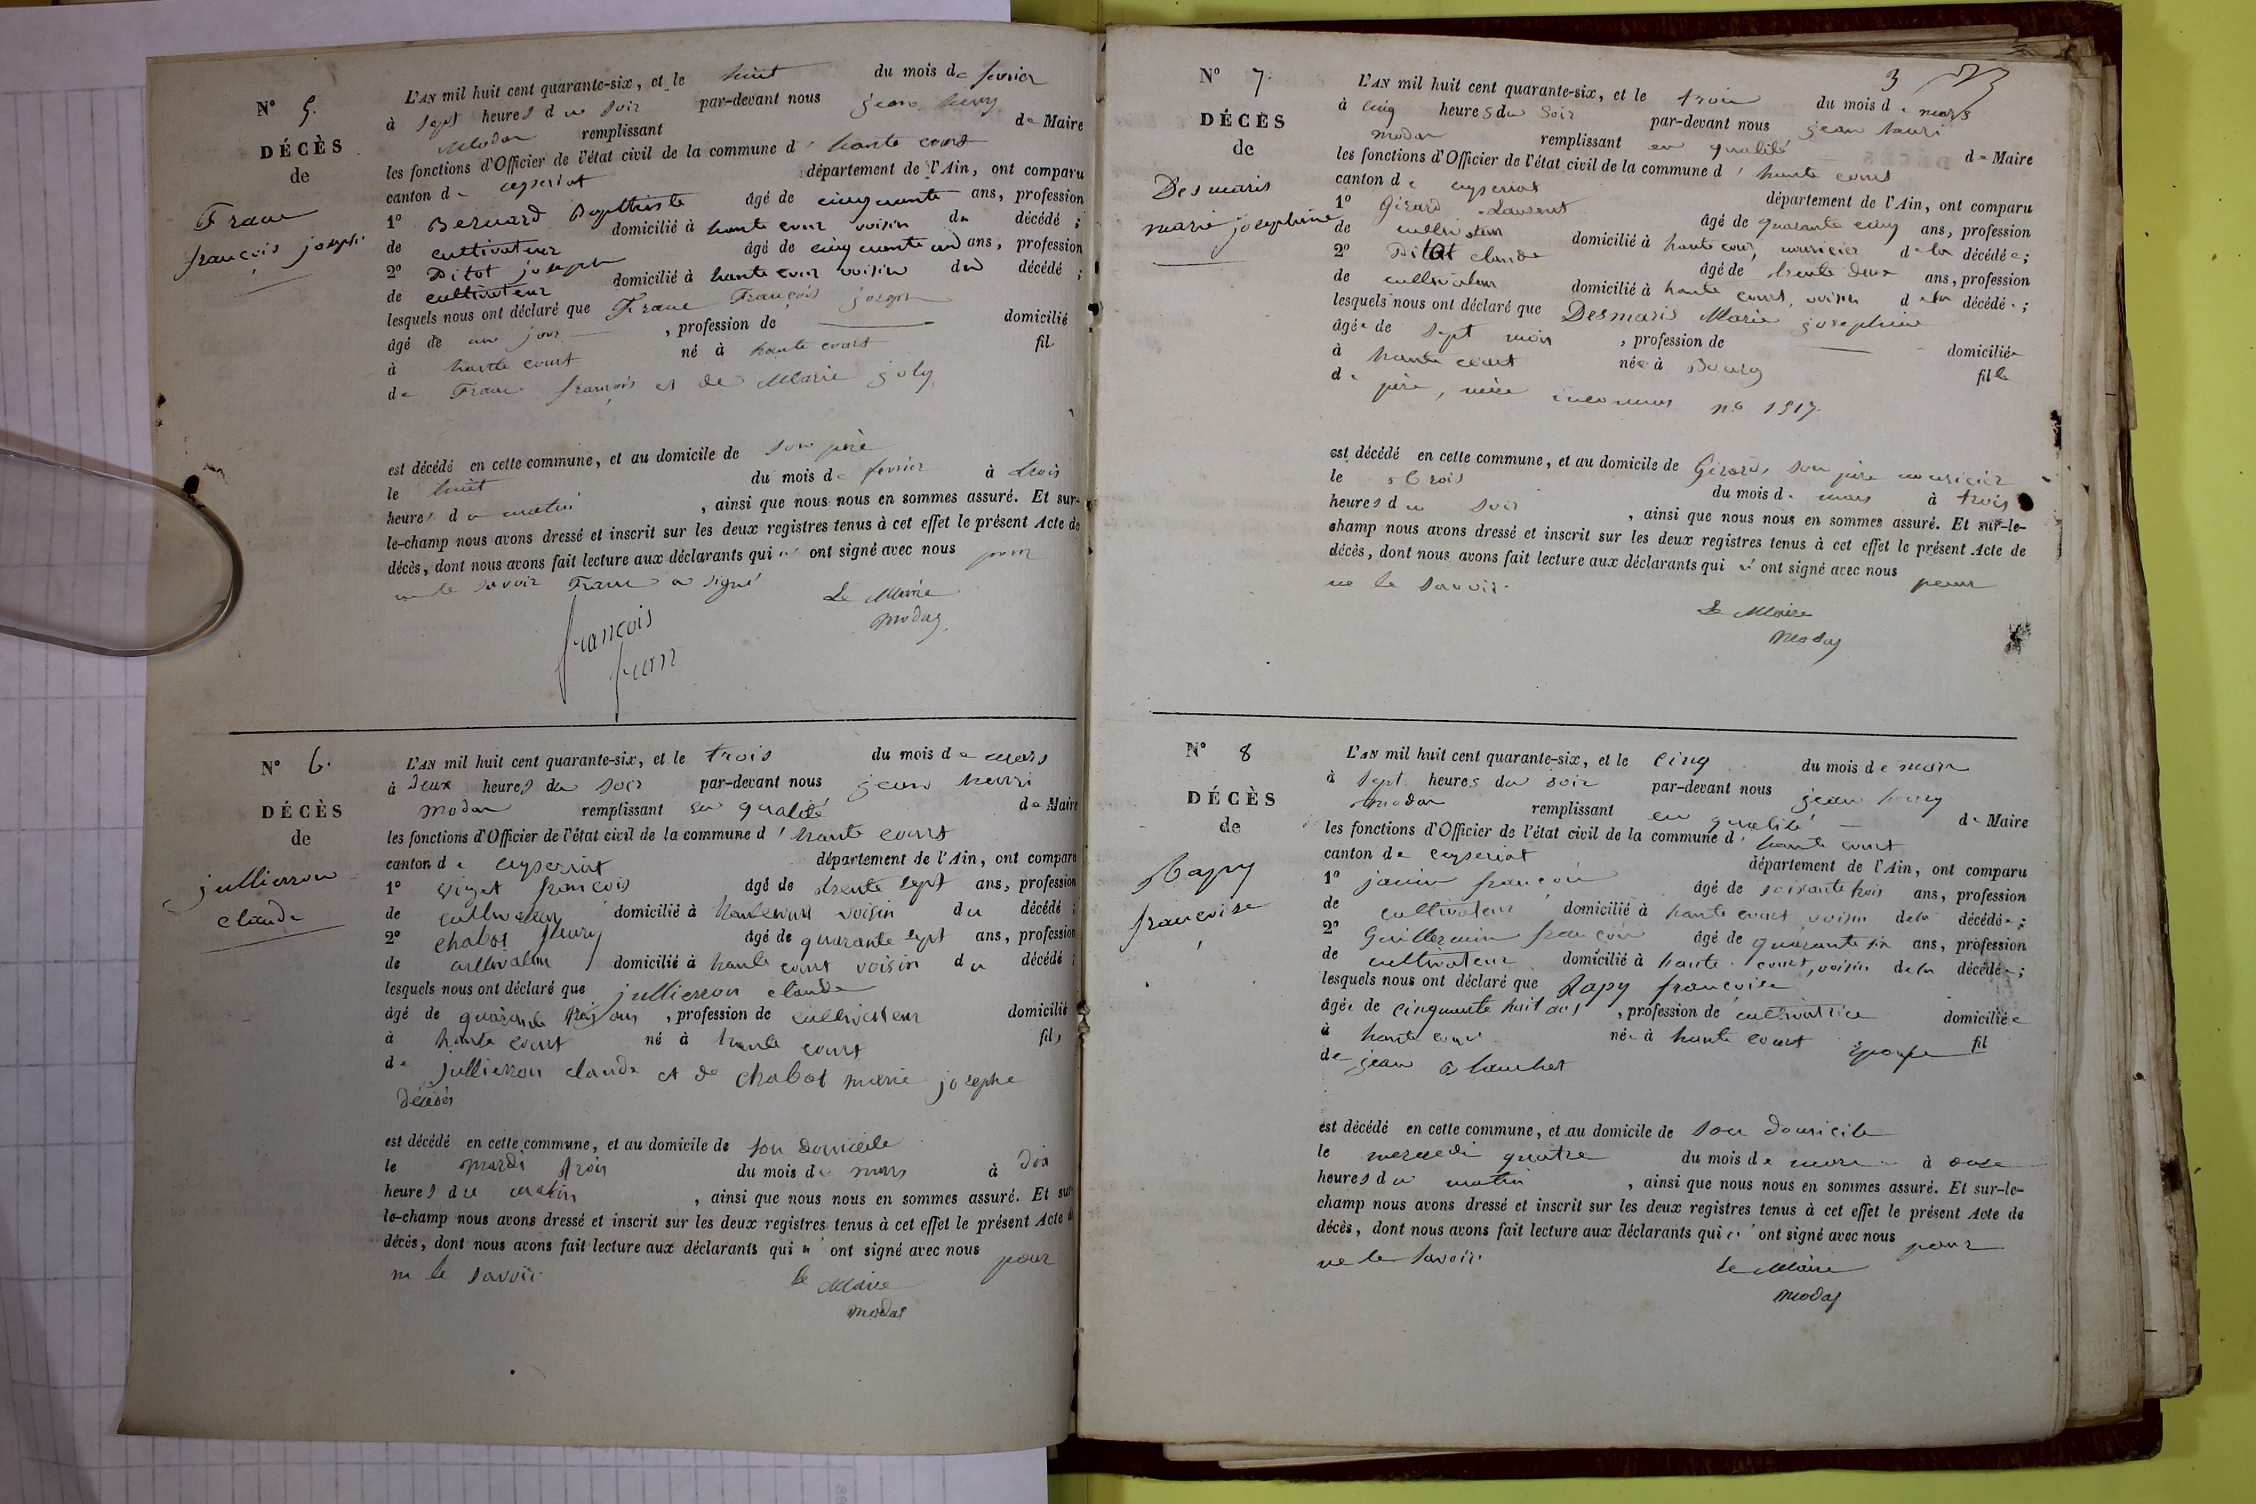 N° 5.
DÉCÈS
de
Franc
françois joseph
L'AN mil huit cent quarante-six, et le huit du mois de fevrier
à sept heures du soir par-devant nous jean henry
Modas remplissant de Maire
les fonctions d'Officier de l'état civil de la commune d' haute court
canton de ceyseriat département de l'Ain, ont comparu
1° Bernard Baptiste âgé de cinquante ans, profession
de cultivateur domicilié à haute cour voisin du décédé ;
2° Pitot joseph âgé de cinquante un ans, profession
de cultivateur domicilié à haute cour voisin du décédé ;
lesquels nous ont déclaré que Franc François joseph
âgé de un jour , profession de domicilié
à haute court né à haute court fil
de Franc françois et de Marie joly
est décédé en cette commune, et au domicile de son père
le huit du mois de fevrier à trois
heures du matin , ainsi que nous nous en sommes assuré. Et sur-
le-champ nous avons dressé et inscrit sur les deux registres tenus à cet effet le présent Acte de
décès, dont nous avons fait lecture aux déclarants qui n' ont signé avec nous pour
ne le savoir Franc a signé
Le Maire
Modas
francois
fran
N° 6.
DÉCÈS
de
jullierron
claude
L'AN mil huit cent quarante-six, et le trois du mois de mars
à deux heures du soir par-devant nous jean henri
modas remplissant en qualité de Maire
les fonctions d'Officier de l'état civil de la commune d' haute court
canton de ceyseriat département de l'Ain, ont comparu
1° françois âgé de trente sept ans, profession
de cultivateur domicilié à hautecourt voisin du décédé ;
2° chabot fleury âgé de quarante sept ans, profession
de cultivateur domicilié à haute court voisin du décédé ;
lesquels nous ont déclaré que jullierron claude
âgé de quarante trois ans , profession de cultivateur domicilié
à haute court né à haute court fils
de jullierron claude et de chabot marie josephe
décédés
est décédé en cette commune, et au domicile de son domicile
le mardi trois du mois de mars à dix
heures du matin , ainsi que nous nous en sommes assuré. Et sur-
le-champ nous avons dressé et inscrit sur les deux registres tenus à cet effet le présent Acte de
décès, dont nous avons fait lecture aux déclarants qui n' ont signé avec nous pour
ne le savoir
le Maire
modas
3
N° 7.
DÉCÈS
de
Desmaris
marie josephine
L'AN mil huit cent quarante-six, et le trois du mois de mars
à cinq heures du soir par-devant nous jean henri
modas remplissant en qualité de Maire
les fonctions d'Officier de l'état civil de la commune d' haute court
canton de ceyseriat département de l'Ain, ont comparu
1° Girard Laurent âgé de quarante cinq ans, profession
de cultivateur domicilié à haute cour, nouricier de la décédée ;
2° Pitot claude âgé de trente deux ans, profession
de cultivateur domicilié à haute court, voisin de la décédé ;
lesquels nous ont déclaré que Desmaris Marie josephine
âgée de sept mois , profession de domiciliée
à haute court née à Bourg fille
de père, mère inconnus n° 1917
est décédé en cette commune, et au domicile de Girard, son père nouricier
le trois du mois de mars à trois
heures du soir , ainsi que nous nous en sommes assuré. Et sur-le-
champ nous avons dressé et inscrit sur les deux registres tenus à cet effet le présent Acte de
décès, dont nous avons fait lecture aux déclarants qui n' ont signé avec nous pour
ne le savoir.
Le Maire
Modas
N° 8
DÉCÈS
de
Rapy
francoise
L'AN mil huit cent quarante-six, et le cinq du mois de mars
à sept heures du soir par-devant nous jean henry
modas remplissant en qualité de Maire
les fonctions d'Officier de l'état civil de la commune d' haute court
canton de ceyseriat département de l'Ain, ont comparu
1° janin françois âgé de soixante trois ans, profession
de cultivateur domicilié à haute court voisin de la décédée ;
2° Guillermin françois âgé de quarante six ans, profession
de cultivateur domicilié à haute court, voisin de la décédée ;
lesquels nous ont déclaré que Rapy francoise
âgée de cinquante huit ans , profession de cultivatrice domiciliée
à haute court née à haute court épouse fil
de jean
est décédé en cette commune, et au domicile de son domicile
le mercredi quatre du mois de mars à onze
heures du matin , ainsi que nous nous en sommes assuré. Et sur-le-
champ nous avons dressé et inscrit sur les deux registres tenus à cet effet le présent Acte de
décès, dont nous avons fait lecture aux déclarants qui n' ont signé avec nous pour
ne le savoir.
Le Maire
Modas